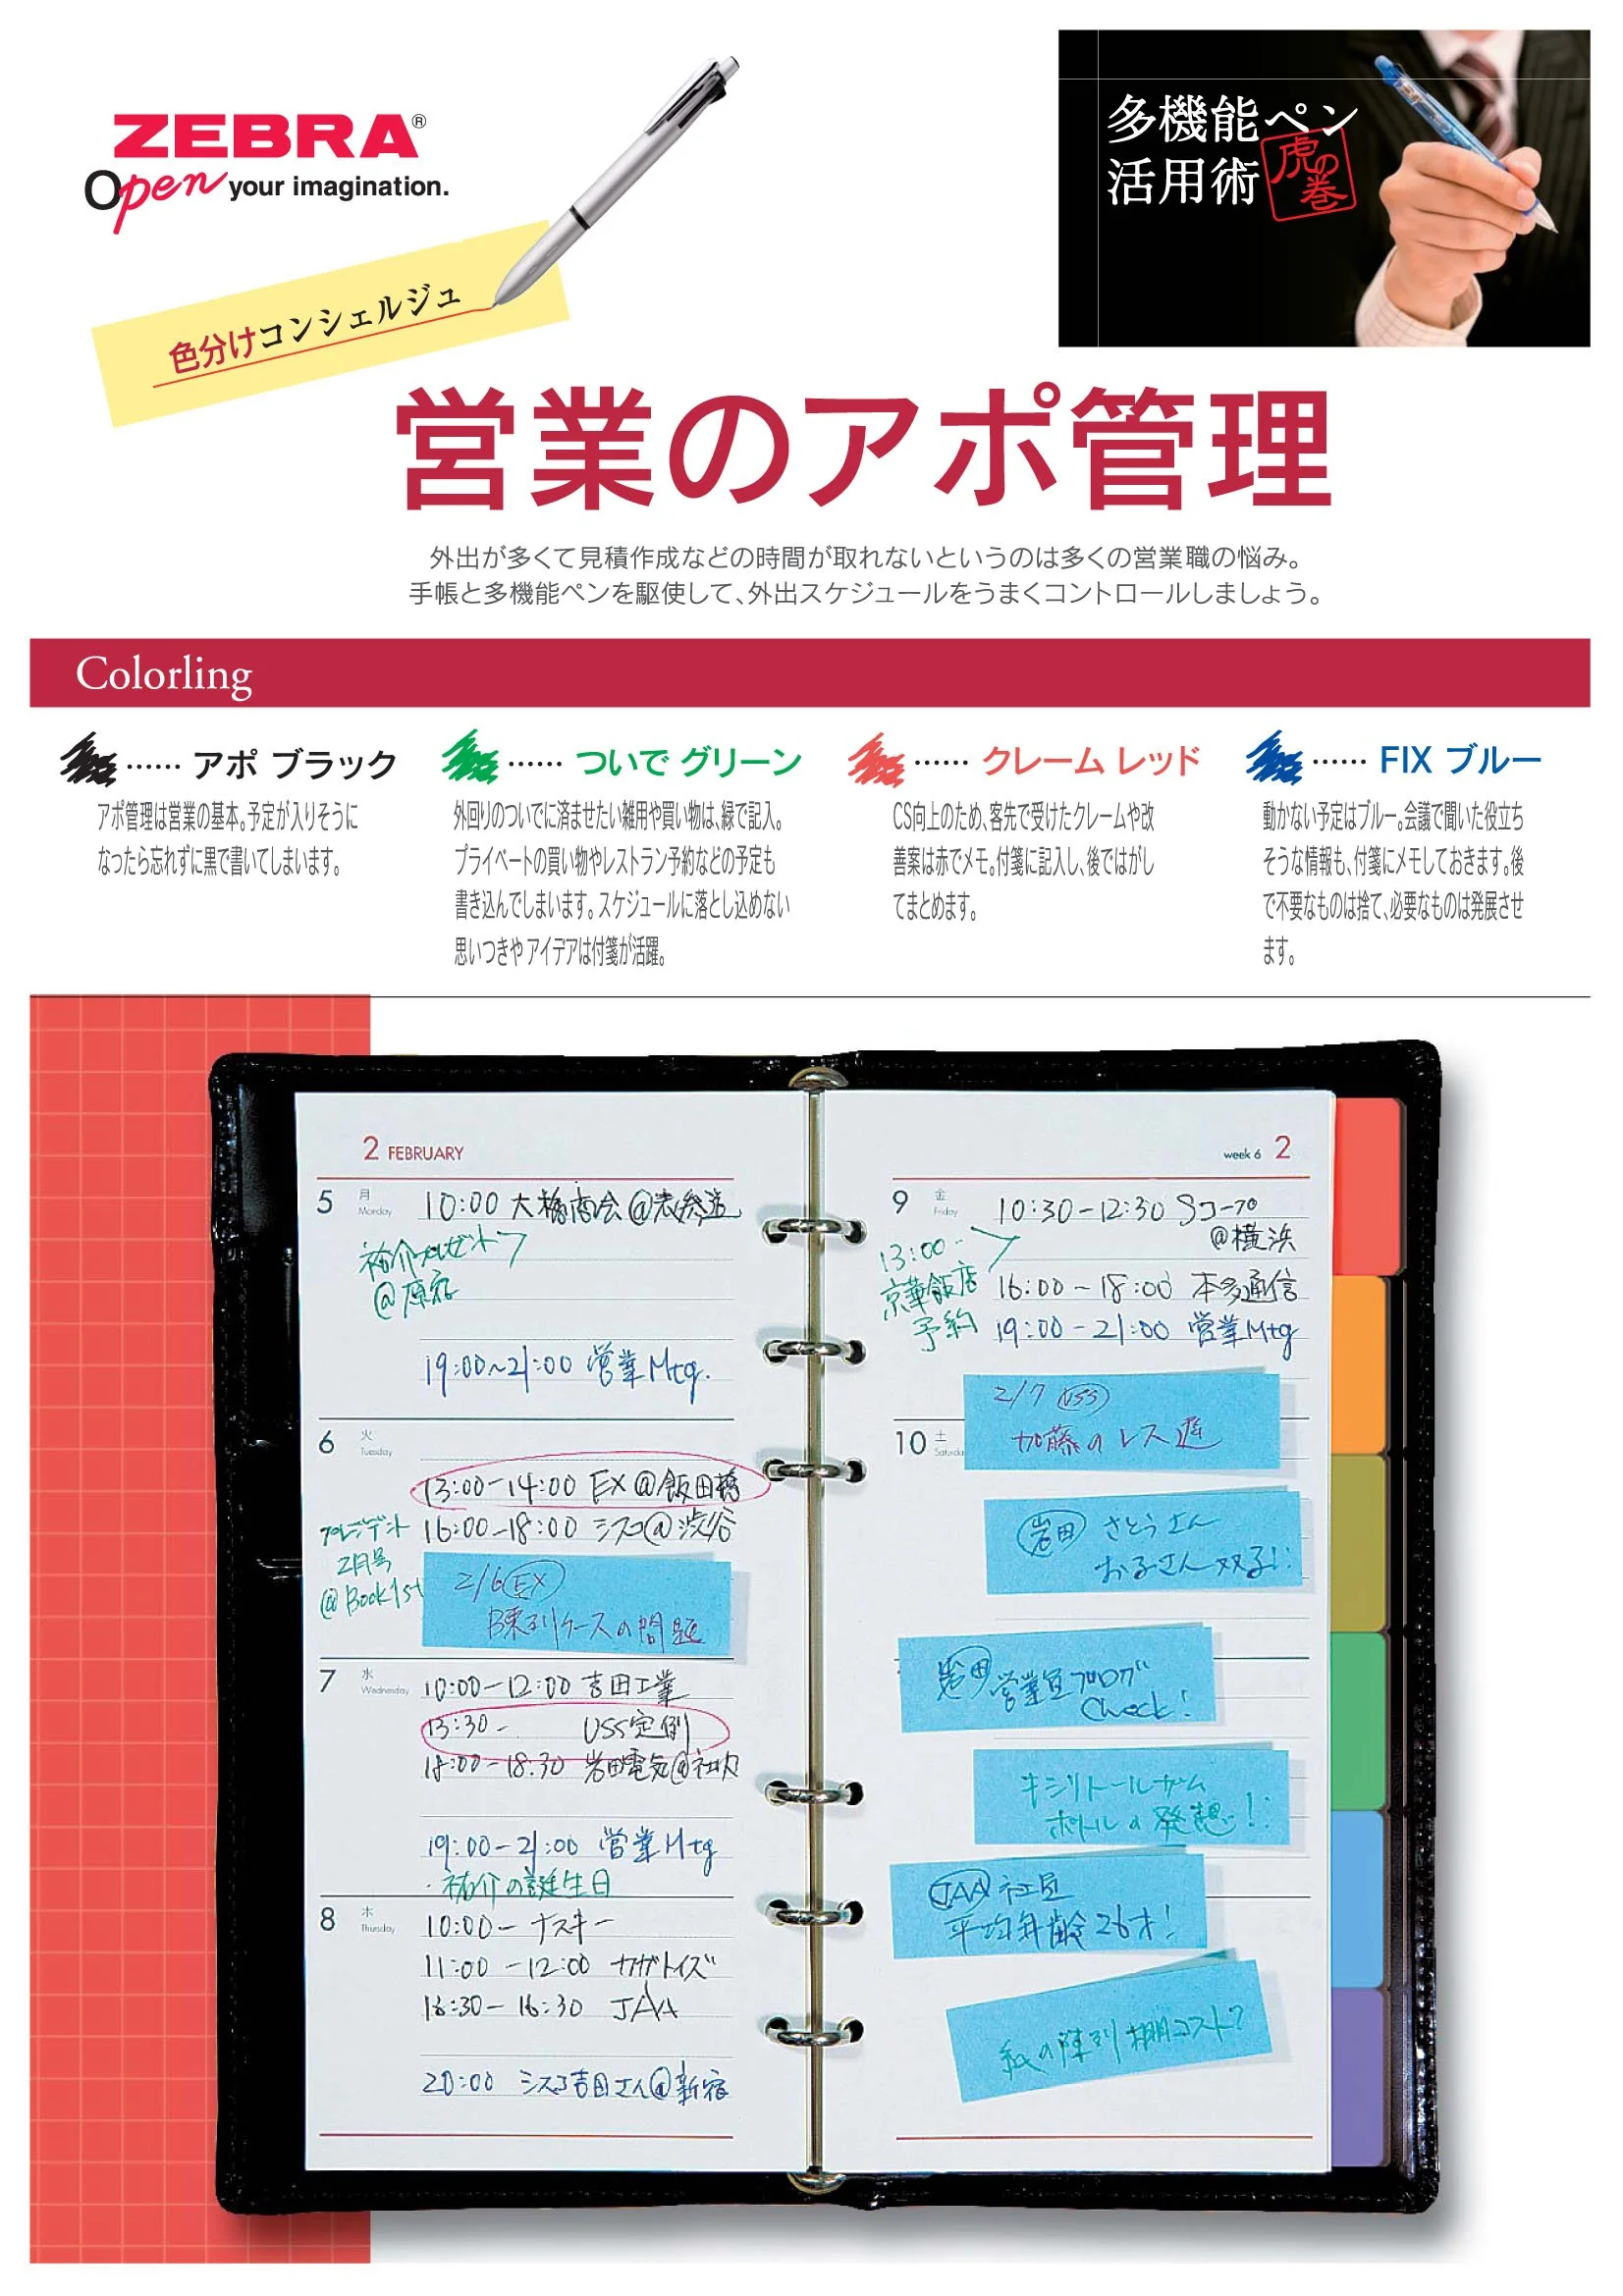 ZEBRA®
Open your imagination.
多機能ペン
活用術
虎の巻
色分けコンシェルジュ
営業のアポ管理
外出が多くて見積作成などの時間が取れないというのは多くの営業職の悩み。
手帳と多機能ペンを駆使して、外出スケジュールをうまくコントロールしましょう。
Colorling
…… アポ ブラック
アポ管理は営業の基本。予定が入りそうに
なったら忘れずに黒で書いてしまいます。
…… ついで グリーン
外回りのついでに済ませたい雑用や買い物は、緑で記入。
プライベートの買い物やレストラン予約などの予定も
書き込んでしまいます。スケジュールに落とし込めない
思いつきや アイデアは付箋が活躍。
…… クレーム レッド
CS向上のため、客先で受けたクレームや改
善案は赤でメモ。付箋に記入し、後ではがし
てまとめます。
…… FIX ブルー
動かない予定はブルー。会議で聞いた役立ち
そうな情報も、付箋にメモしておきます。後
で不要なものは捨て、必要なものは発展させ
ます。
2 FEBRUARY
5 月 Monday
10:00 大橋商会@表参道
祐介プレゼント
@原宿
19:00~21:00 営業Mtg.
6 火 Tuesday
13:00-14:00 EX@飯田橋
16:00-18:00 シスコ@渋谷
プレジデント
2月号
@Book1st
2/6 EX
B陳列ケースの問題
7 水 Wednesday
10:00-12:00 吉田工業
13:30- USS定例
18:00-18:30 岩田電気@
19:00-21:00 営業Mtg
・祐介の誕生日
8 木 Thursday
10:00- ナスキー
11:00-12:00 ナガトイズ
16:30 JAA
20:00 シスコ吉田さん@新宿
week 6 2
9 金 Friday
10:30-12:30 Sコープ
@横浜
13:00-
京華飯店
予約
16:00-18:00 本多通信
19:00-21:00 営業Mtg
2/7 USS
加藤のレス遅
10 土 Saturda
岩田 さとうさん
お子さん双子!!
岩田 営業員ブログ
Check!
キシリトールガム
ボトルの発想!!
JAA 社員
平均年齢26才!
紙の陳列棚コスト?